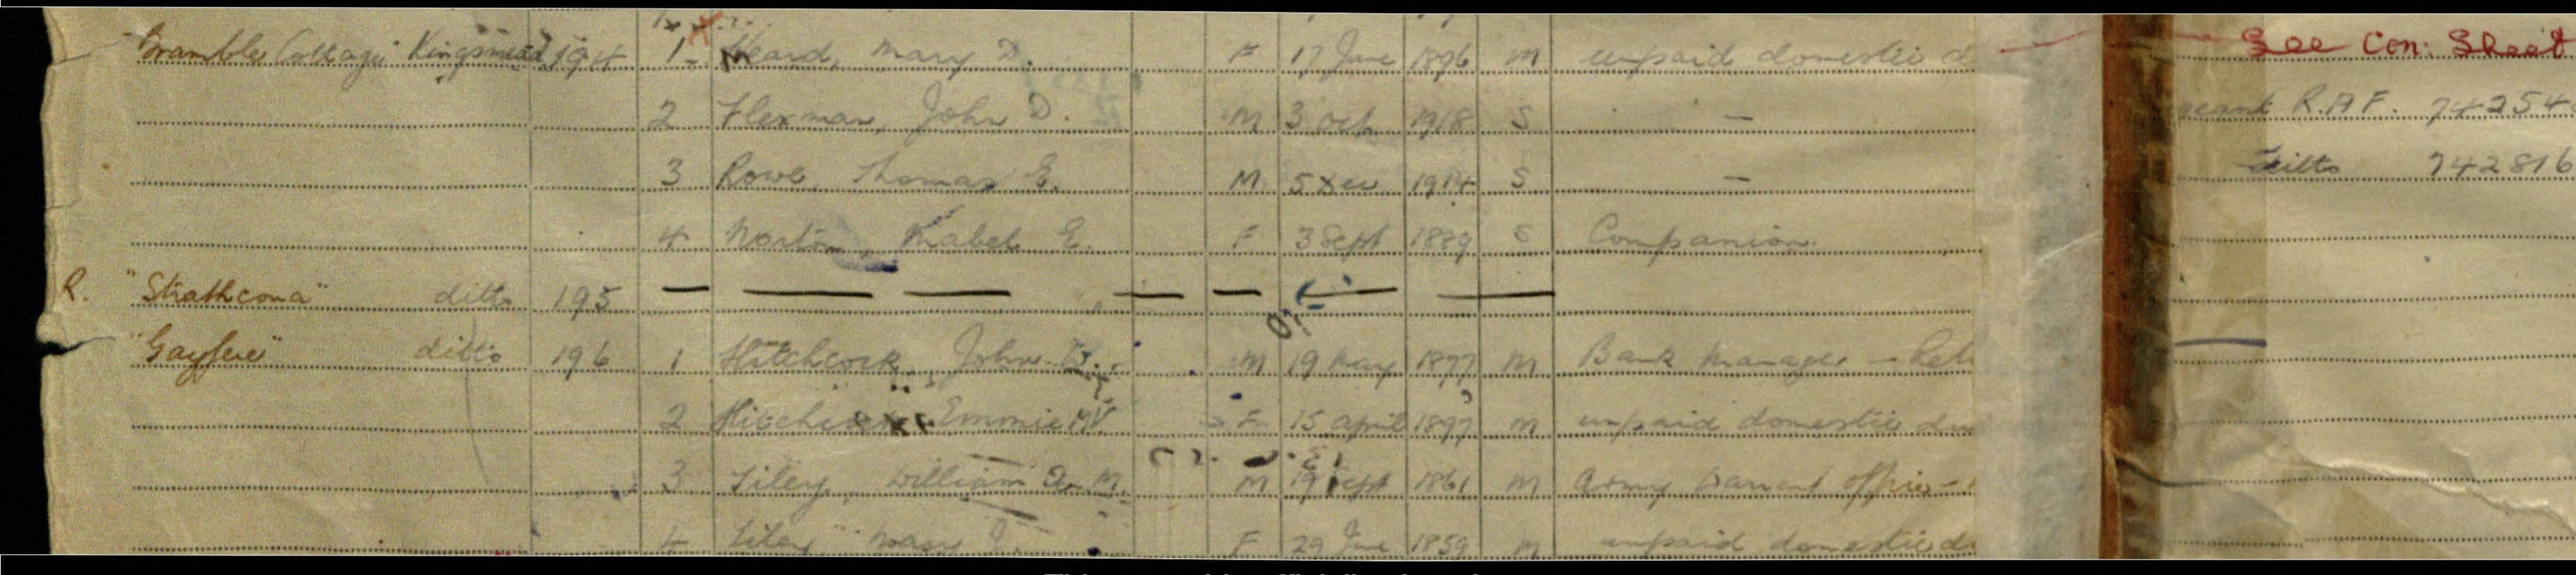 "Bramble Cottage" Kingsmead 194 1 Heard, Mary D. F 17 June 1896 M unpaid domestic d See Con: Sheet
2 Flexman, John D. M 3 Oct 1918 S — geant R.A.F. 74254
3 Rowe, Thomas E. M 5 Dec 1914 S — ditto 742816
4 Norton, Mabel E. F 3 Sept 1889 S Companion.
R. "Strathcona" ditto 195 — — — — — — —
ditto 196 1 Hitchcock, John W. M 19 May 1877 M Bank Manager — Ret
2 Hitchcock Emmie M V. F 15 April 1897 M unpaid domestic du
3 Tiley, William M. M 19 Sept 1861 M Army Warrant Office -
4 Tiley F 29 June 1859 M unpaid domestic d